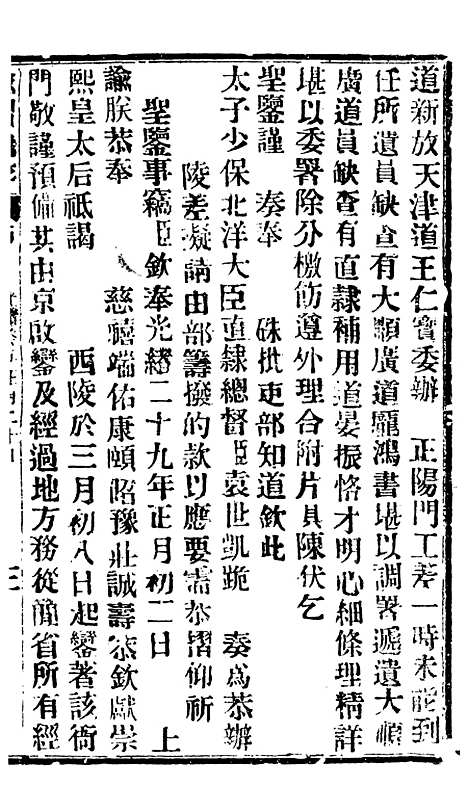 道新放天津道王仁寶委辦　正陽門工差一時未能到
任所遺員缺查有大順廣道龐鴻書堪以調署遞遺大順
廣道員缺查有直隸補用道晏振恪才明心細條理精詳
堪以委署除分檄飭遵外理合附片具陳伏乞
聖鑒謹　奏奉　硃批吏部知道欽此
太子少保北洋大臣直隸總督臣袁世凱跪　奏爲恭辦
陵差擬請由部籌撥的款以應要需恭摺仰祈
聖鑒事竊臣欽奉光緒二十九年正月初二日　上
諭朕恭奉　慈禧端佑康頤昭豫莊誠壽恭欽獻崇
熙皇太后祗謁　西陵於三月初八日起鑾著該衙
門敬謹預備其由京啟鑾及經過地方務從簡省所有經